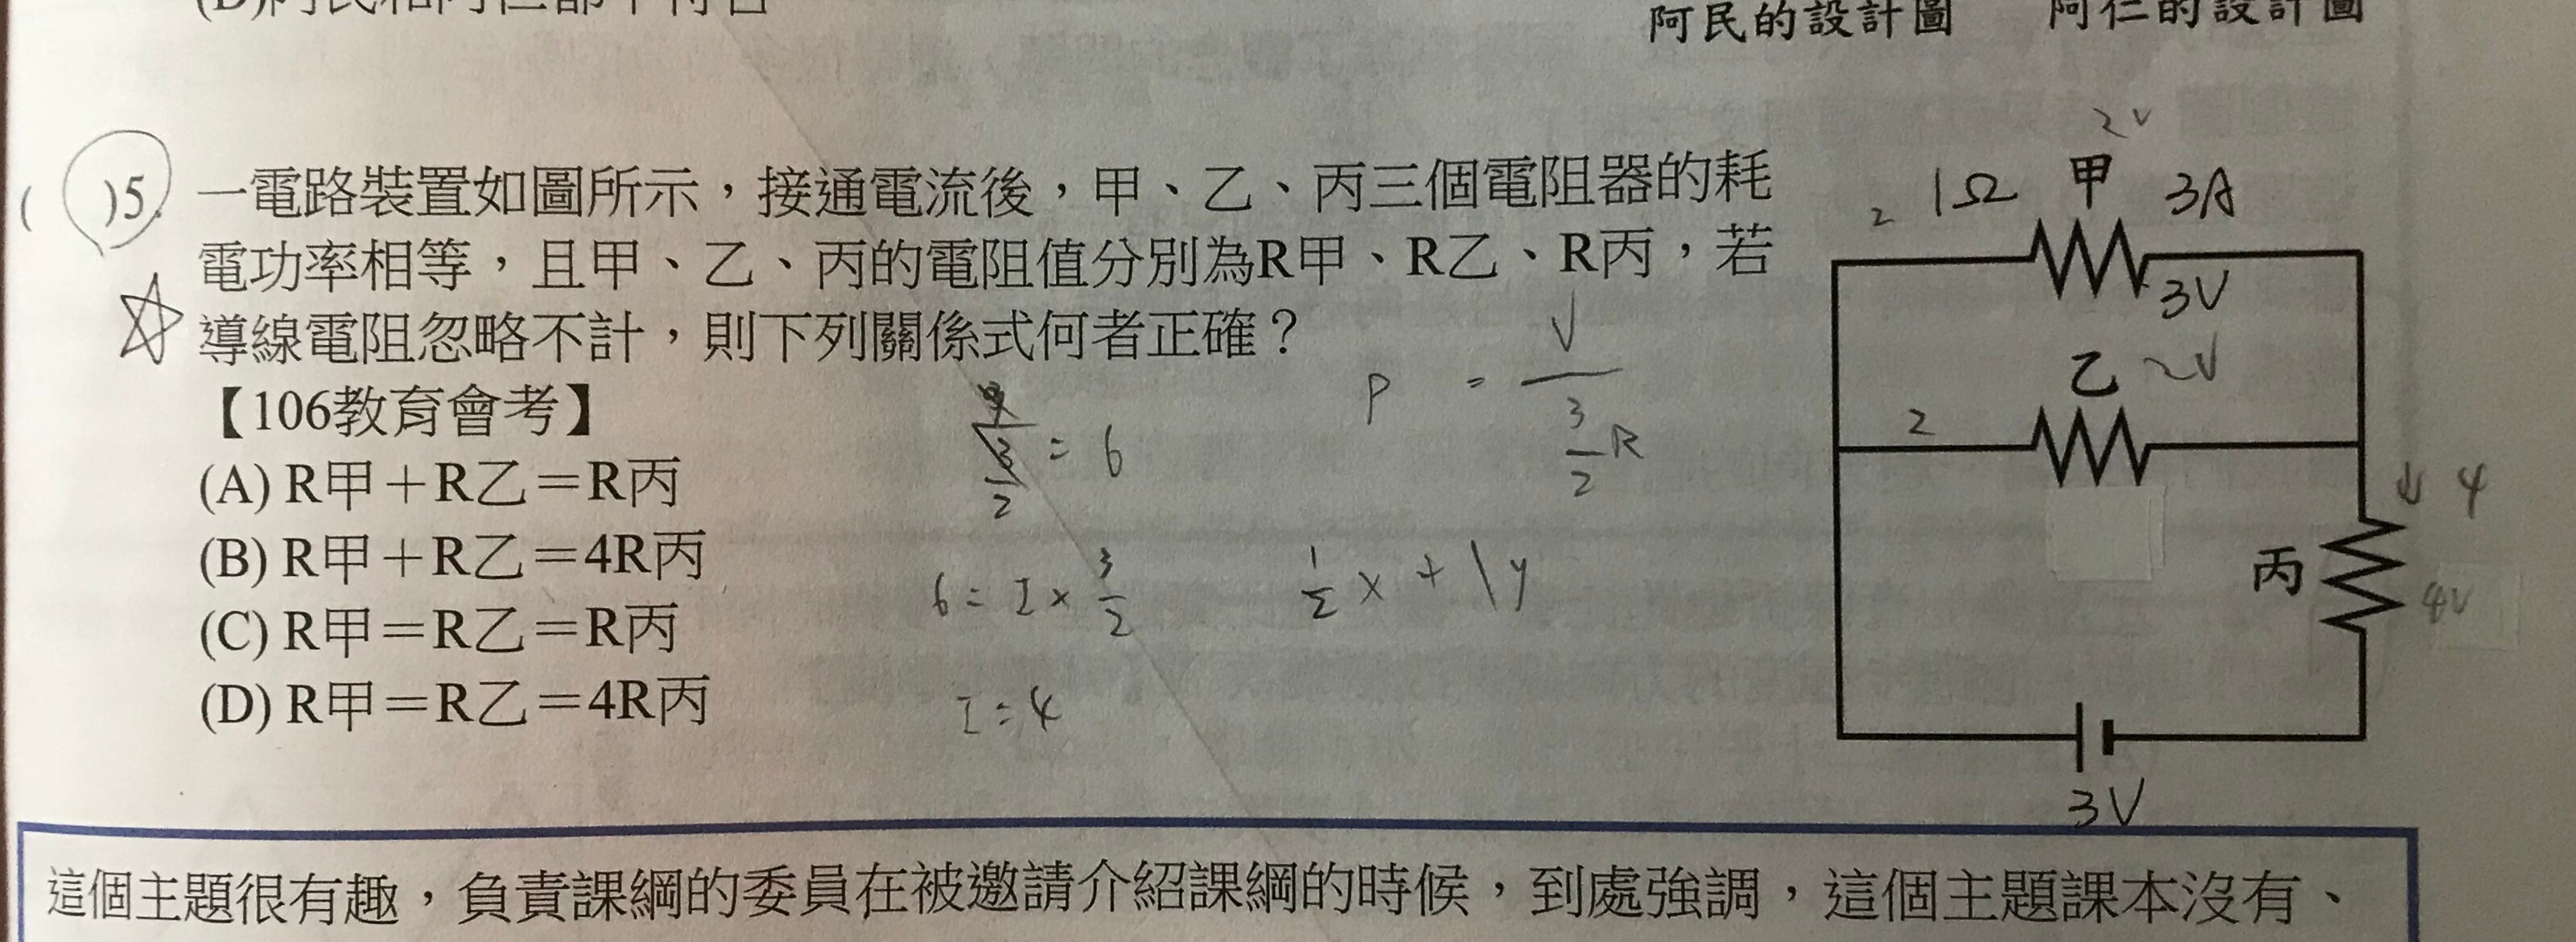 阿民的設計圖 阿仁的設計圖
( )5. 一電路裝置如圖所示，接通電流後，甲、乙、丙三個電阻器的耗
電功率相等，且甲、乙、丙的電阻值分別為R甲、R乙、R丙，若
導線電阻忽略不計，則下列關係式何者正確？
【106教育會考】
(A) R甲＋R乙＝R丙
(B) R甲＋R乙＝4R丙
(C) R甲＝R乙＝R丙
(D) R甲＝R乙＝4R丙
= 6
P = V / 3/2 R
6 = I × 3/2
1/2 x + 1y
I = 4
2V
2 1Ω 甲 3A
3V
乙 2V
2
↓ 4
丙 4V
3V
這個主題很有趣，負責課綱的委員在被邀請介紹課綱的時候，到處強調，這個主題課本沒有、